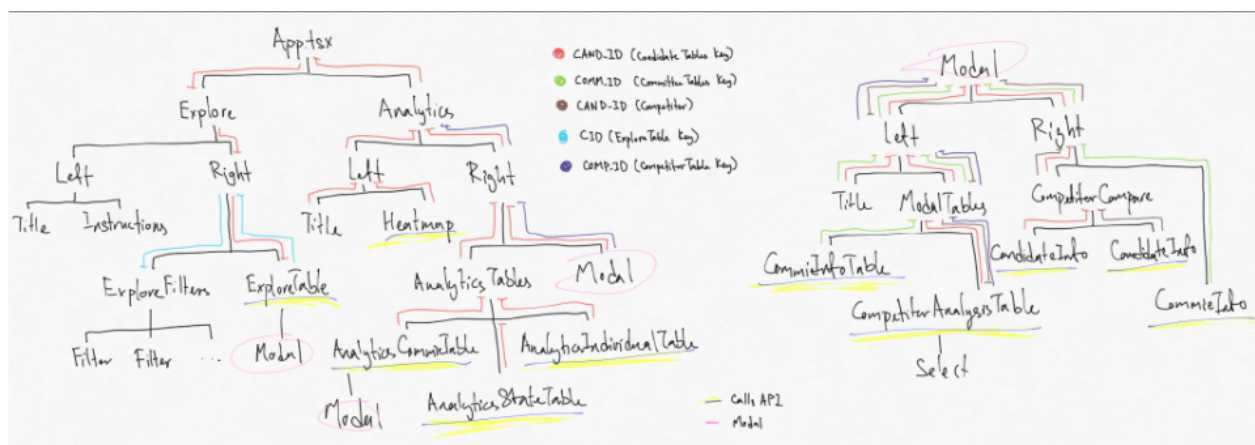 App.tsx
Explore
Analytics
Left
Right
Left
Right
Title
Instructions
Title
Heatmap
ExploreFilters
ExploreTable
AnalyticsTables
Modal
Filter
Filter
...
Modal
AnalyticsCommieTable
AnalyticsIndividualTable
Modal
AnalyticsStateTable
CAND_ID (Candidate Tables Key)
COMM_ID (Committee Tables Key)
CAND_ID (Competitor)
CID (ExploreTable Key)
COMP_ID (CompetitorTable Key)
Calls API
Modal
Modal
Left
Right
Title
ModalTables
CompetitorCompare
CommieInfoTable
CandidateInfo
CandidateInfo
CompetitorAnalysisTable
CommieInfo
Select